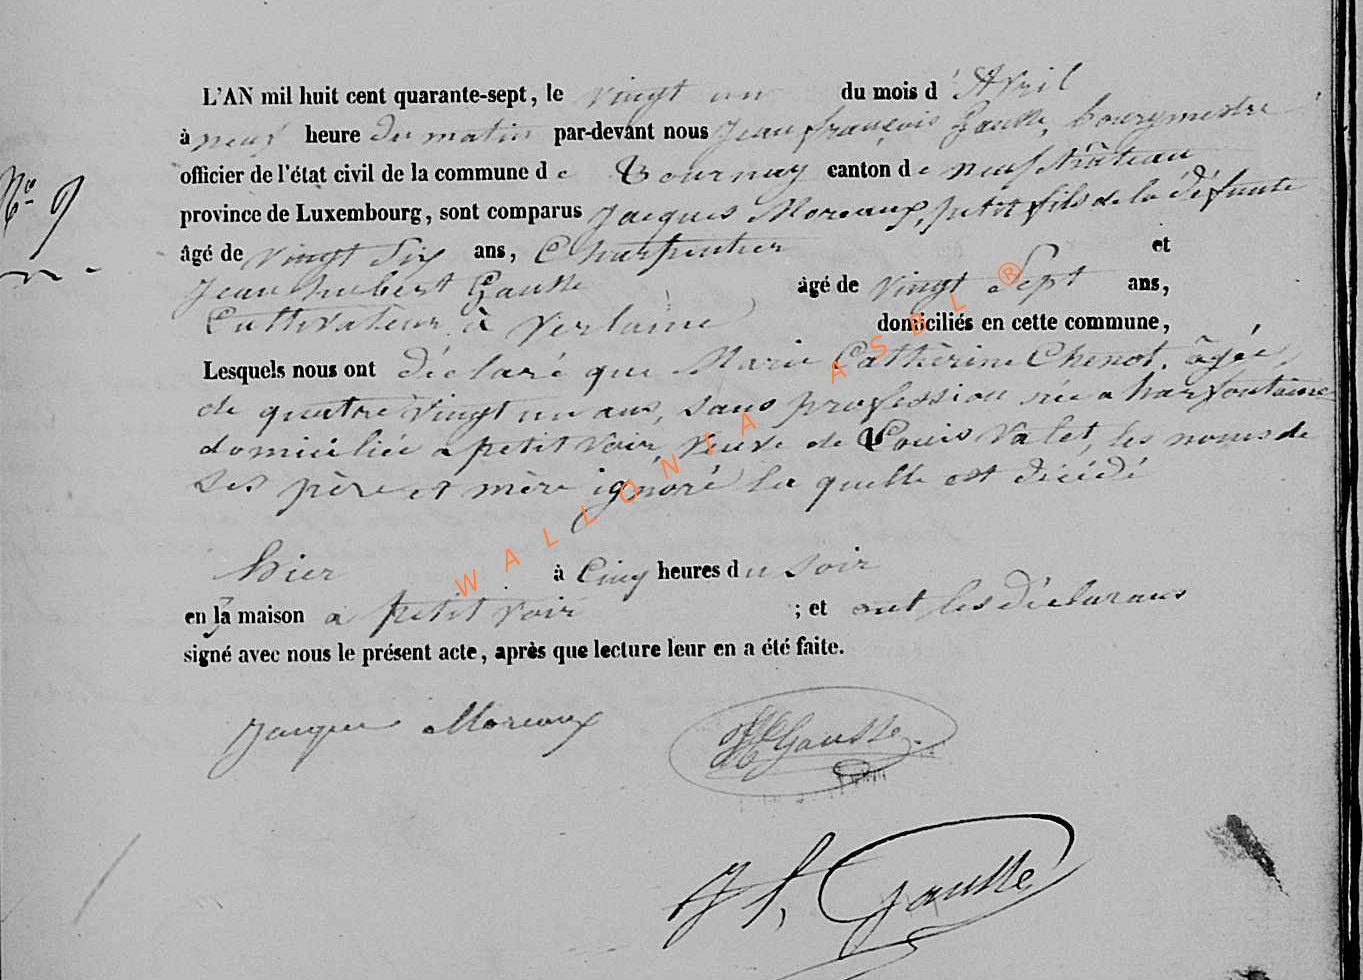 L'AN mil huit cent quarante-sept, le vingt un du mois d'Avril
à neuf heure du matin par-devant nous Jean françois Gausse, bourgmestre
officier de l'état civil de la commune de Tournay canton de neufchâteau
N.° 9
province de Luxembourg, sont comparus Jacques Moreaux, petit fils de la défunte
âgé de vingt Six ans, Charpentier et
Jean hubert Gausse âgé de vingt Sept ans,
Cultivateur à Verlaine domiciliés en cette commune,
Lesquels nous ont déclaré que Marie Catherine Chenot, âgée,
de quatre vingt un ans, sans profession née a harfontaine
domiciliée a petit voir veuve de Louis Valet, les noms de
ses père et mère ignoré la quelle est décédé
hier à Cinq heures du soir
en la maison a petit voir ; et ont les déclarans
signé avec nous le présent acte, après que lecture leur en a été faite.
WALLONIA ASBL ®
Jacques Moreaux Gausse
J f. Gausse